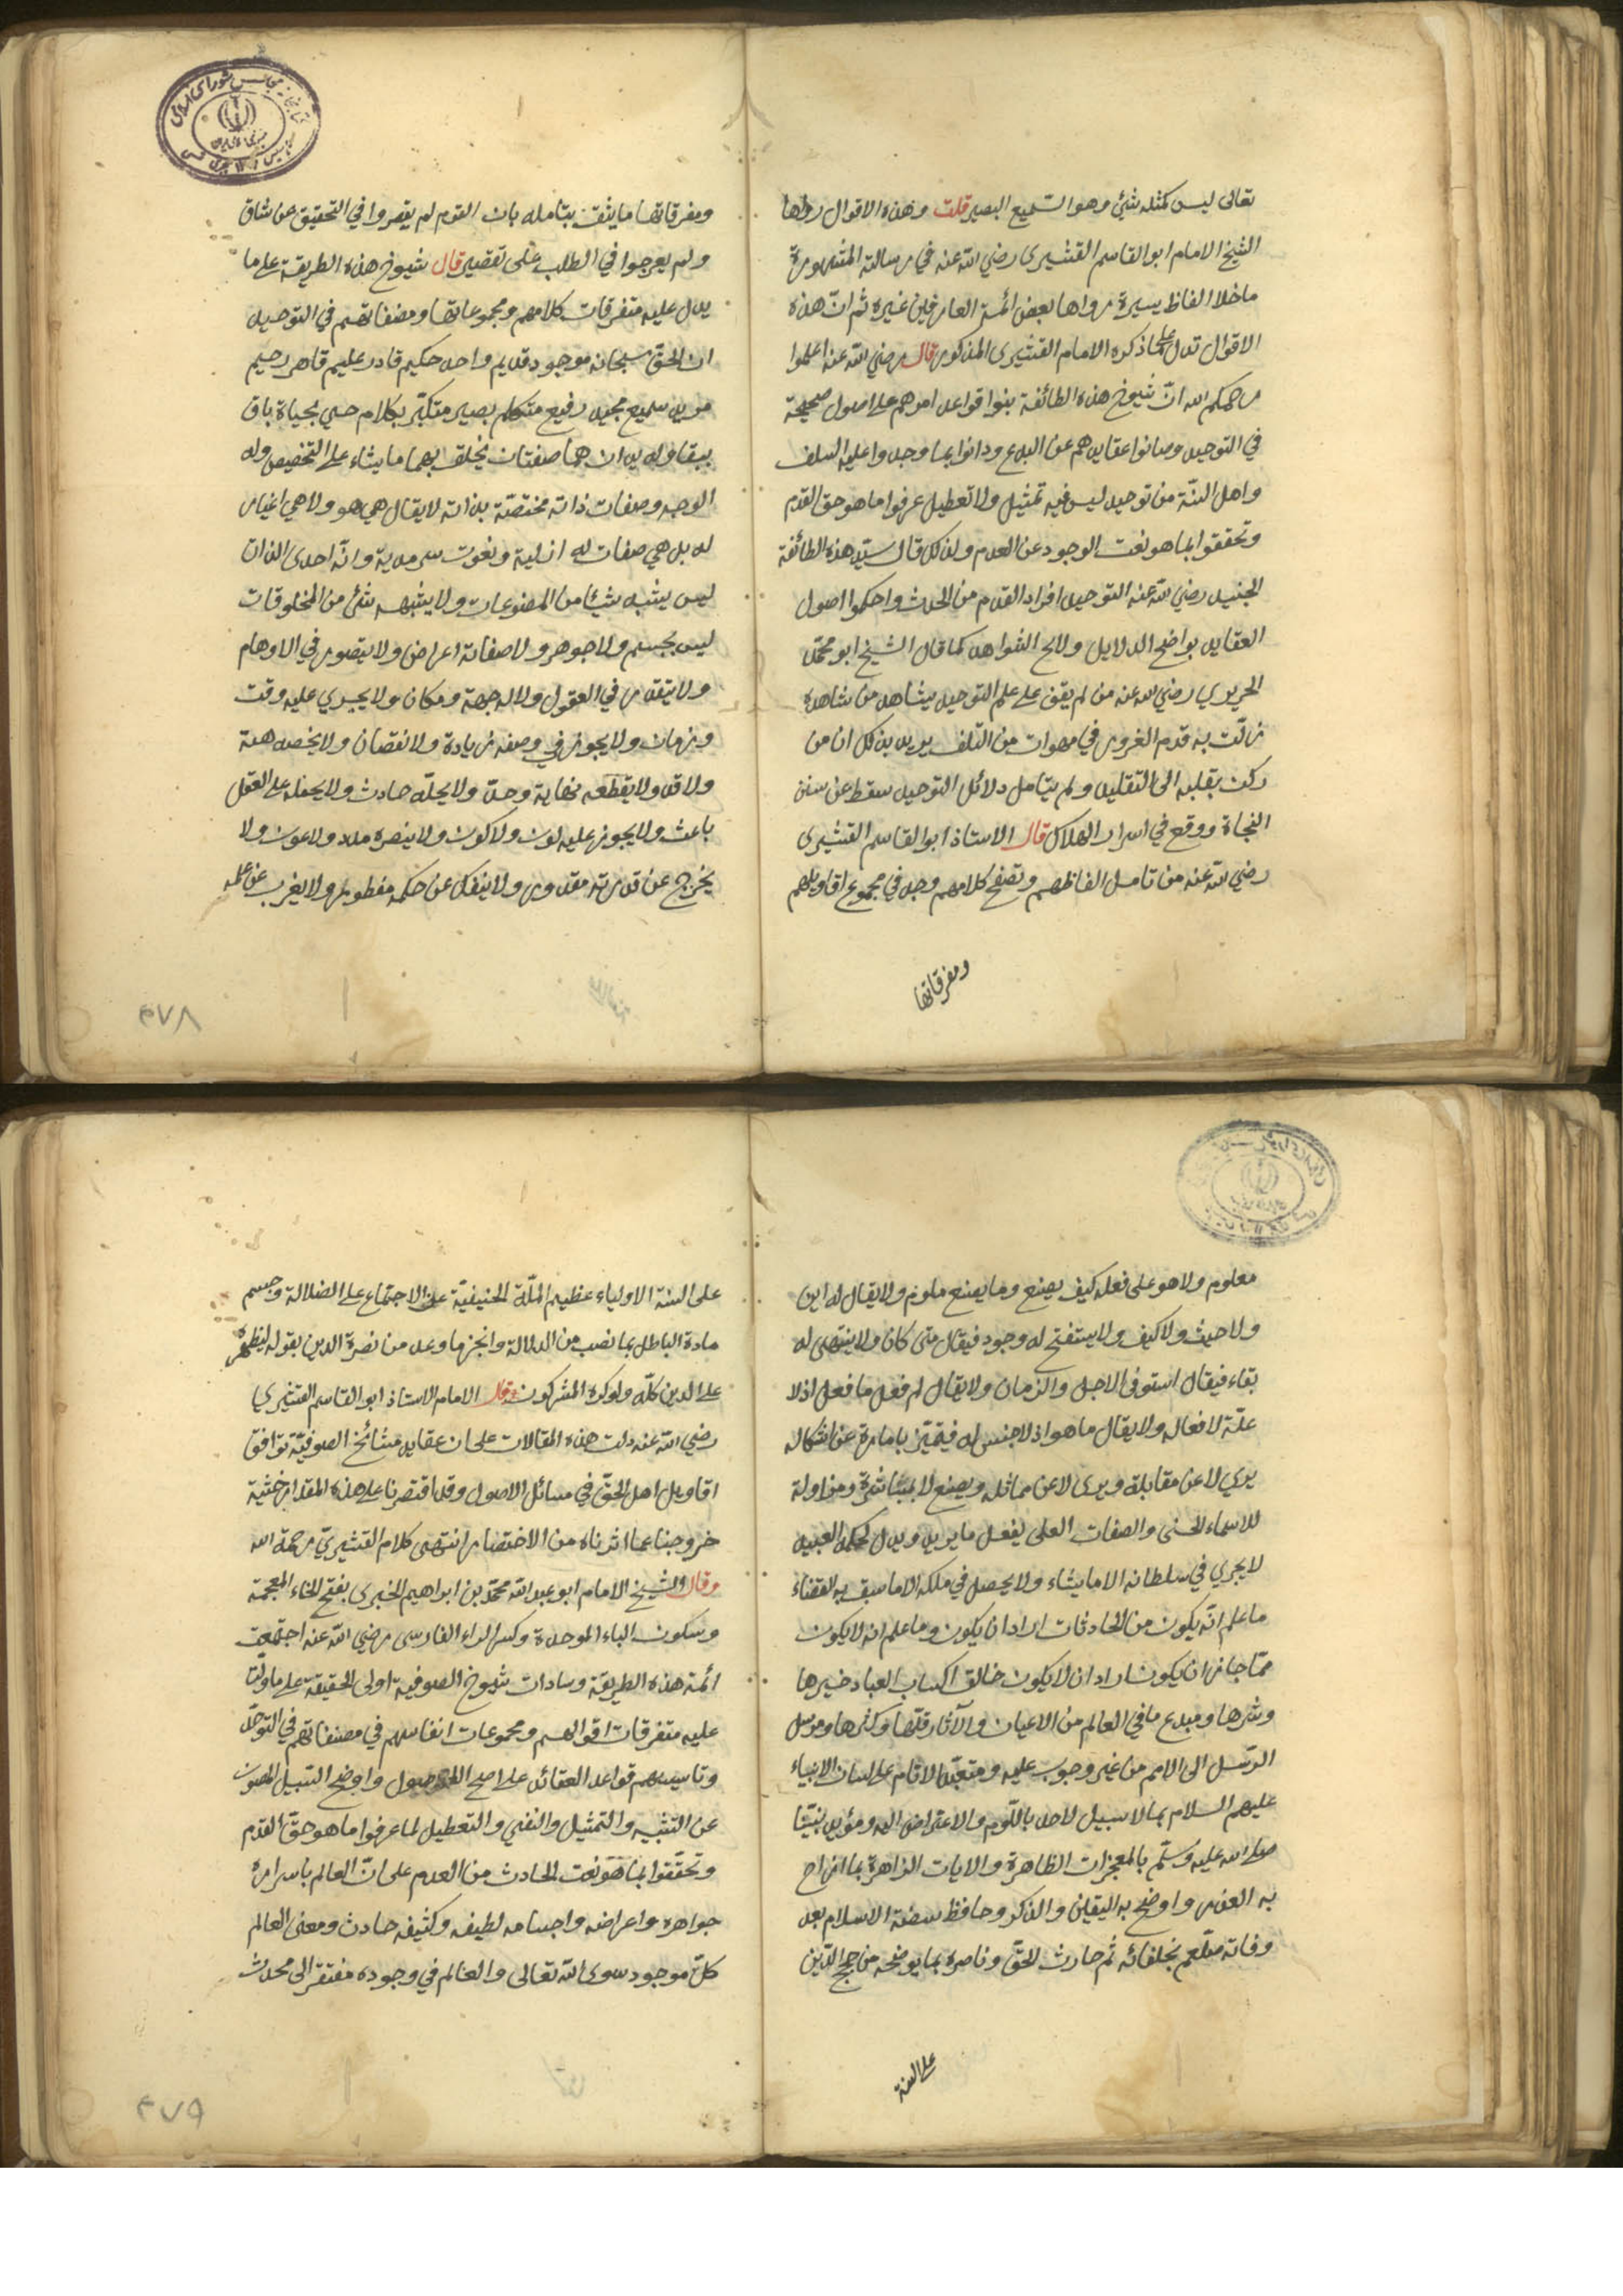 تعالى ليس كمثله شئ وهو السميع البصير قلت وهذه الاقوال رواها
الشيخ الامام ابو القاسم القشيرى رضي الله عنه في رسالته المشهورة
ماخلا الفاظ يسيرة رواها بعض ائمة العارفين غيره ثم ان هذه
الاقوال تدل على ما ذكره الامام القشيرى المذكور قال رضي الله عنه اعلموا
رحمكم الله ان شيوخ هذه الطائفة بنوا قواعد امرهم على اصول صحيحة
في التوحيد وصانوا عقايدهم عن البدع ودانوا بما وجدوا عليه السلف
واهل السنة من توحيد ليس فيه تمثيل ولا تعطيل عرفوا ما هو حق القدم
وتحققوا بما هو نعت الوجود عن العدم ولذلك قال سيد هذه الطائفة
الجنيد رضي الله عنه التوحيد افراد القدم من الحدث واحكموا اصول
العقايد بواضح الدلايل ولايح الشواهد كما قال الشيخ ابو محمد
الحريري رضي الله عنه من لم يقف على علم التوحيد بشاهد من شاهده
زلت به قدم الغرور في مهوات من التلف يريد بذلك ان من
ركن بقلبه الى التقليد ولم يتامل دلائل التوحيد سقط عن سنن
النجاة ووقع في اسرار الهلاك قال الاستاذ ابو القاسم القشيرى
رضي الله عنه من تامل الفاظهم وتصفح كلامهم وجد في مجموع اقاويلهم
ومفرقاتها
ومفرقاتها ما يثق بتامله بان القوم لم يقصروا في التحقيق عن شاق
ولم يعرجوا في الطلب على تقصير قال شيوخ هذه الطريقة على ما
يدل عليه متفرقات كلامهم ومجموعاتها ومصنفاتهم في التوحيد
ان الحق سبحانه موجود قديم واحد حكيم قادر عليم قاهر رحيم
مريد سميع مجيد رفيع متكلم بصير متكبر بكلام حي بحياة باق
ببقا وله يدان هما صفتان يخلق بهما ما يشاء على التخصيص وله
الوجه وصفات ذاته مختصة بذاته لا يقال هي هو ولا هي اغيار
له بل هي صفات له ازلية ونعوت سرمدية وانه احدى الذات
ليس يشبه شيئا من المصنوعات ولا يشبهه شئ من المخلوقات
ليس بجسم ولا جوهر ولا صفاته اعراض ولا يتصور في الاوهام
ولا يتقدر في العقول ولا له جهة ومكان ولا يجري عليه وقت
وزمان ولا يجوز في وصفه زيادة ولا نقصان ولا يخصه هيئة
ولا قد ولا يقطعه نهاية وحد ولا يحله حادث ولا يحمله على الفعل
باعث ولا يجوز عليه لون ولا كون ولا ينصره مدد ولا عون ولا
يخرج عن قدرته مقدور ولا ينفك عن حكمه مفطور ولا يغرب عن علمه
٤٧٨
معلوم ولا هو على فعله كيف يصنع وما يصنع ملوم ولا يقال له اين
ولا حيث ولا كيف ولا يستفتح له وجود فيقال متى كان ولا ينتهى له
بقاء فيقال استوفى الاجل والزمان ولا يقال لم فعل ما فعل اذ لا
علة لافعاله ولا يقال ما هو اذ لا جنس له فيتميز بامارة عن اشكاله
يرى لا عن مقابلة ويرى لا عن مماثله ويصنع لا بمباشرة ومزاولة
له الاسماء الحسنى والصفات العلى يفعل ما يريد ويدل لحكمه العبيد
لا يجري في سلطانه الا ما يشاء ولا يحصل في ملكه الا ما سبق به القضاء
ما علم انه يكون من الحادثات اراد ان يكون وما علم انه لا يكون
مما جاز ان يكون اراد ان لا يكون خالق اكساب العباد خيرها
وشرها ومبدع ما في العالم من الاعيان والآثار قلها وكثرها ومرسل
الرسل الى الامم من غير وجوب عليه ومتعبد الانام على لسان الانبياء
عليهم السلام بما لا سبيل لاحد باللوم والاعتراض اليه ومؤيد نبينا
صلى الله عليه وسلم بالمعجزات الظاهرة والايات الزاهرة بما ازاح
به العذر واوضح به اليقين والذكر وحافظ بيضة الاسلام بعد
وفاته صلعم بخلفائه ثم حارث الحق وناصره بما يوضحه من حجج الدين
على السنة
على السنة الاولياء عظيم الملة الحنيفية على الاجتماع على الضلالة وحسم
مادة الباطل بما نصب من الدلالة وانجز ما وعد من نصرة الدين بقوله ليظهره
على الدين كله ولو كره المشركون وقال الامام الاستاذ ابو القاسم القشيري
رضي الله عنه دلت هذه المقالات على ان عقايد مشائخ الصوفية توافق
اقاويل اهل الحق في مسائل الاصول وقد اقتصرنا على هذه المقدار خشية
خروجنا عما اثرناه من الاختصار انتهى كلام القشيري رحمة الله
وقال الشيخ الامام ابو عبد الله محمد بن ابراهيم الخبرى بفتح الخاء المعجمة
وسكون الباء الموحدة وكسر الراء الفارسى رضي الله عنه اجتمعت
ائمة هذه الطريقة وسادات شيوخ الصوفية اولى الحقيقة على ما دلت
عليه متفرقات اقوالهم ومجموعات انفاسهم في مصنفاتهم في التوحد
وتاسيسهم قواعد العقائد على اصح الاصول واوضح السبيل المصون
عن التشبيه والتمثيل والنفي والتعطيل لما عرفوا ما هو حق القدم
وتحققوا بما هو نعت الحادث من العدم على ان العالم باسراره
جواهره واعراضه واجسامه لطيفه وكثيفه حادث ومعنى العالم
كل موجود سوى الله تعالى والعالم في وجوده مفتقر الى محدث
٤٧٩